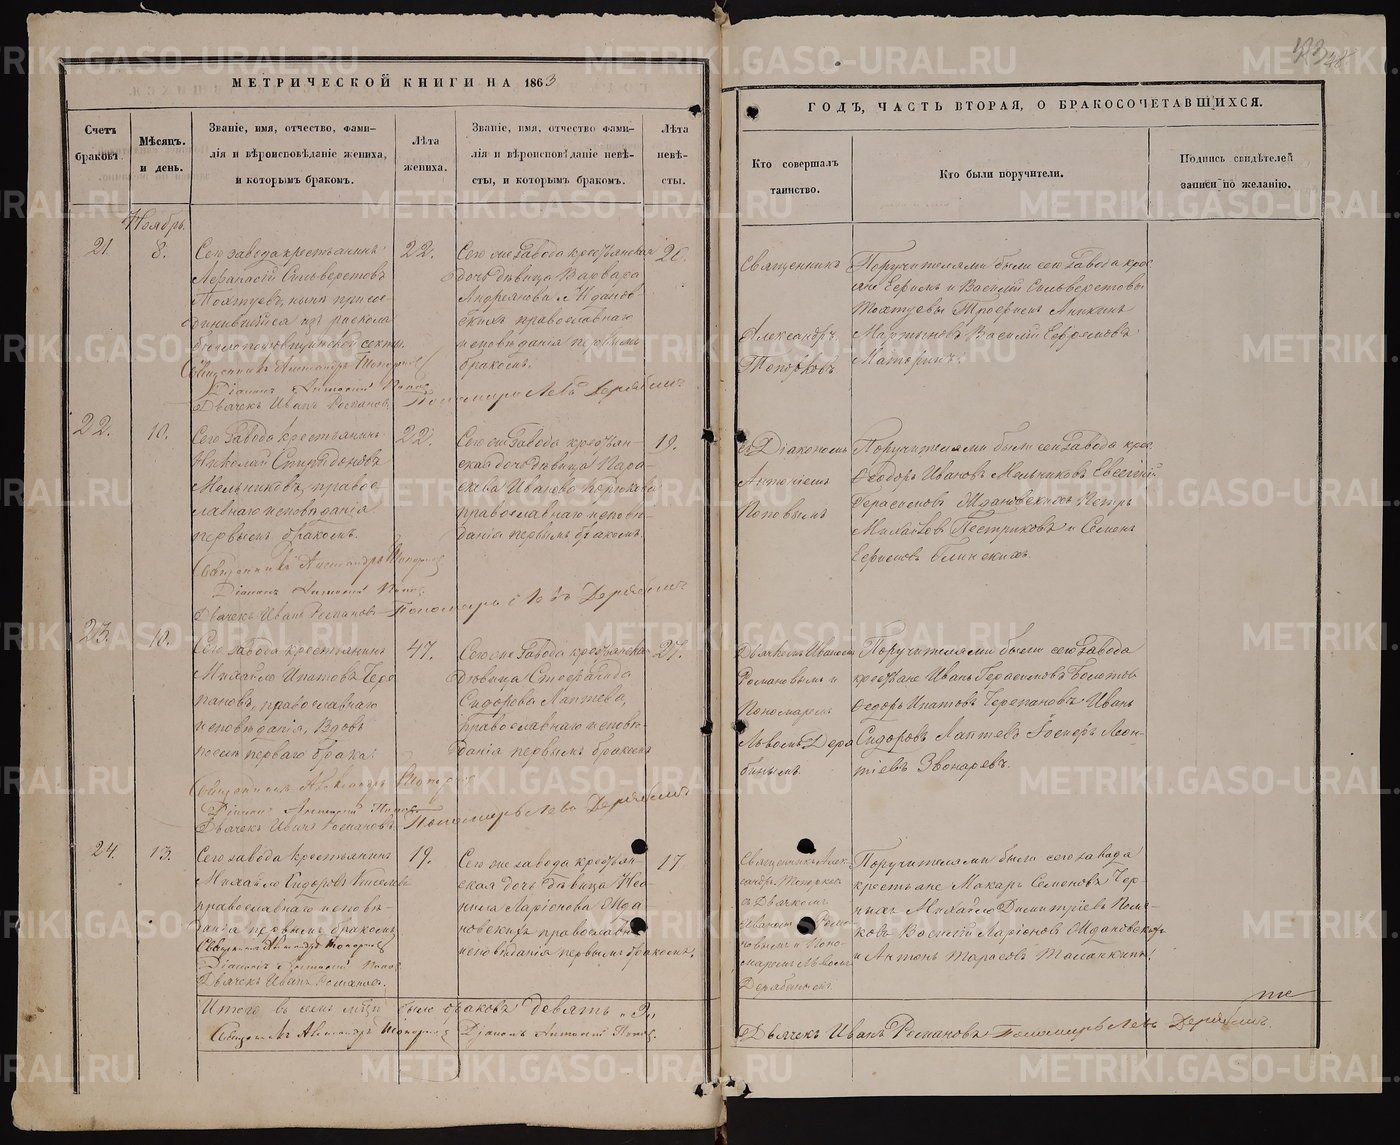 МЕТРИЧЕСКОЙ КНИГИ НА 1863
Счетъ браковъ.
Мѣсяцъ. и день.
Званіе, имя, отчество, фами-
лія и вѣроисповѣданіе жениха,
и которымъ бракомъ.
Лѣта жениха.
Званіе, имя, отчество фами-
лія и вѣроисповѣданіе невѣ-
сты, и которымъ бракомъ.
Лѣта невѣ-
сты.
Ноябрь
21.
8.
Сего завода крестьянинъ
Сильверстовъ
нынѣ присое-
динившійся изъ раскола
секты.
Священникъ Александръ Топорковъ
Діаконъ Антоній Поповъ
Дьячекъ Иванъ Романовъ
Пономарь Левъ Дерябинъ
22.
Сего же завода крестьянская
дочь дѣвица Варвара
Андреянова
православнаго
исповѣданія первымъ
бракомъ.
20.
22.
10.
Сего завода крестьянинъ
Николай Спиридоновъ
Мельниковъ, право-
славнаго исповѣданія
первымъ бракомъ.
Священникъ Александръ Топорковъ
Діаконъ Антоній Поповъ
Дьячекъ Иванъ Романовъ
Пономарь Левъ Дерябинъ
22.
Сего же завода крестьян-
ская дочь дѣвица Пара-
скева Иванова
православнаго исповѣ-
данія первымъ бракомъ.
19.
23.
10.
Сего завода крестьянинъ
Михайло Ипатовъ Чере-
пановъ, православнаго
исповѣданія, вдовъ
послѣ перваго брака.
Священникъ Александръ Топорковъ
Діаконъ Антоній Поповъ
Дьячекъ Иванъ Романовъ
Пономарь Левъ Дерябинъ
47.
Сего же завода крестьянская
дѣвица Стефанида
Сидорова Лаптева,
православнаго исповѣ-
данія первымъ бракомъ
27.
24.
13.
Сего завода крестьянинъ
Михайло Сидоровъ Киселевъ
православнаго исповѣ-
данія первымъ бракомъ
Священникъ Александръ Топорковъ
Діаконъ Антоній Поповъ
Дьячекъ Иванъ Романовъ.
19.
Сего же завода крестьян-
ская дочь дѣвица
Ларіонова Жда-
новскихъ православнаго
исповѣданія первымъ бракомъ.
17
Итого въ семъ м-цѣ было браковъ девять 9.
Священникъ Александръ Топорковъ Діаконъ Антоній Поповъ.
ГОДЪ, ЧАСТЬ ВТОРАЯ, О БРАКОСОЧЕТАВШИХСЯ.
Кто совершалъ
таинство.
Кто были поручители.
Подпись свидѣтелей
записи по желанію.
Священникъ
Александръ
Топорковъ
Поручителями были сего завода крес-
яне Ефимъ и Василій Сильверстовы
Аникинъ
Мартыновъ Василій Ефремовъ
съ Діакономъ
Антоніемъ
Поповымъ
Поручителями были сего завода крес-
Ѳеодоръ Ивановъ Мельниковъ Евсевій
Герасимовъ Ждановскихъ Петръ
Михайловъ Пестриковъ и Семенъ
Ефимовъ Блинскихъ.
Дьячкомъ Иваномъ
Романовымъ и
Пономаремъ
Львомъ Деря-
бинымъ
Поручителями были сего завода
крестьяне Иванъ Герасимовъ Болотовъ
Ѳедоръ Ипатовъ Черепановъ Иванъ
Сидоровъ Лаптевъ Леон-
тіевъ Звонаревъ.
Священникъ Алек-
сандръ Топорковъ
съ Дьячкомъ
Иваномъ Рома-
новымъ и Поно-
маремъ Львомъ
Дерябинымъ.
Поручителями были сего завода
крестьяне Макаръ Семеновъ Чер-
ныхъ Михайло Димитріевъ Поля-
ковъ Василій Ларіоновъ Ждановскихъ
и Антонъ Тарасовъ
Дьячекъ Иванъ Романовъ Пономарь Левъ Дерябинъ.
METRIKI.GASO-URAL.RU